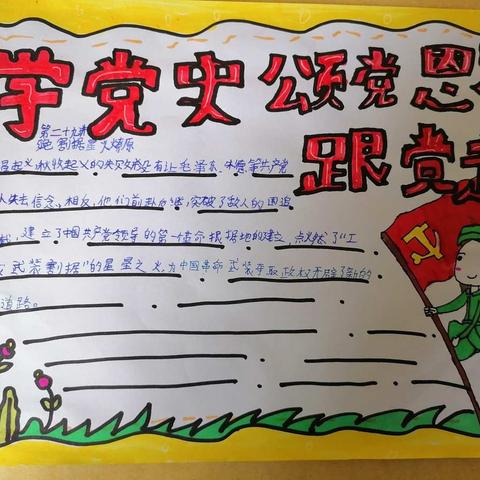 学党史 颂党恩
跟党走
第二十九讲
星火燎原
昌起义、秋收起义的失败没有让毛泽东、朱德等共产党
人失去信念。相反，他们前赴后继，突破了敌人的围追
建立了中国共产党领导的第一个革命根据地的建立，点燃了"工
武装割据"的星星之火，为中国革命武装夺取政权开辟了新的
道路。